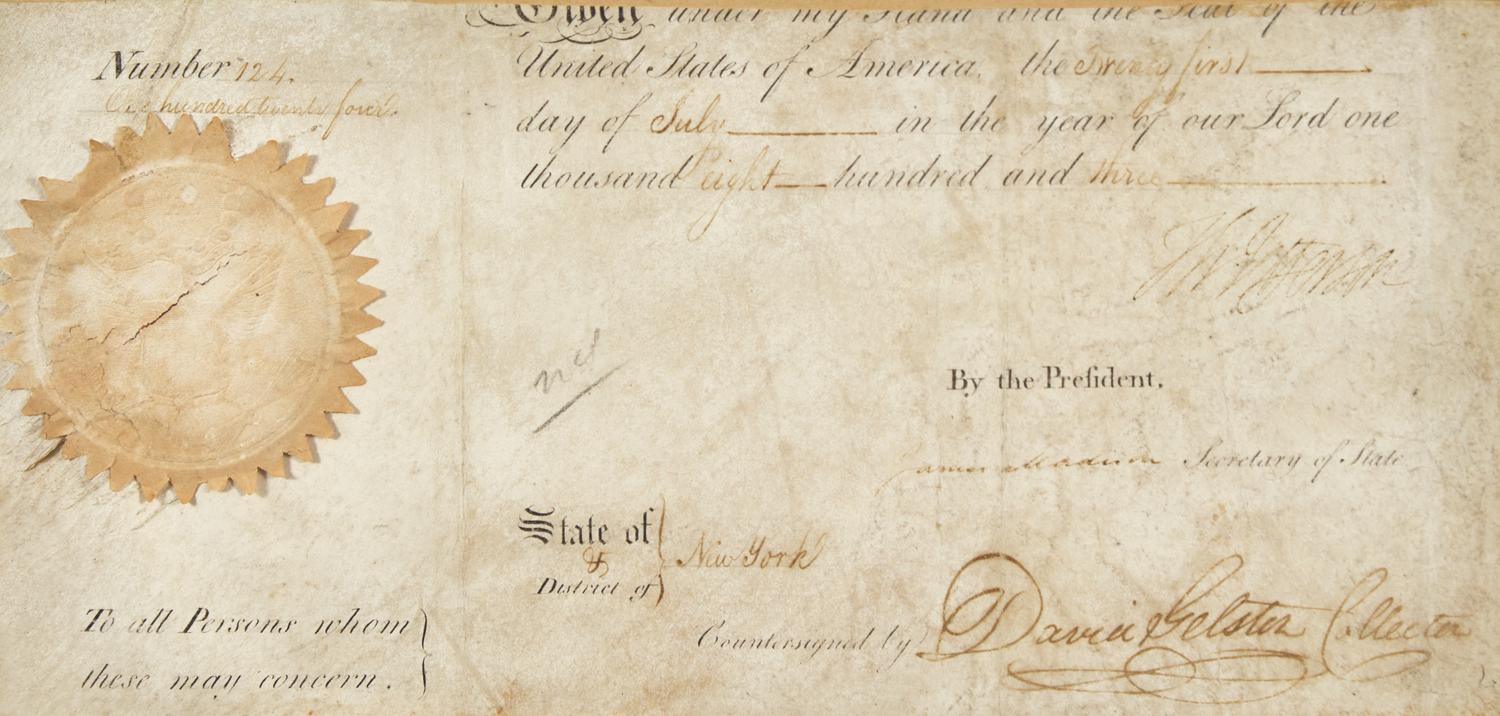 Given under my Hand and the Seal of the
Number 124.
One hundred twenty four.
United States of America, the Twenty first
day of July in the year of our Lord one
thousand eight hundred and three
Th Jefferson
By the Preſident,
James Madison Secretary of State
State of
&
District of
New York
To all Persons whom
these may concern.
Countersigned by David Gelston Collector